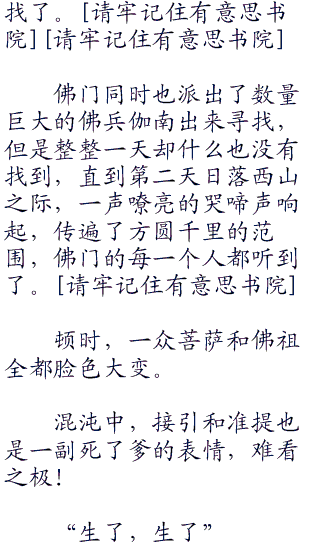 找了。[请牢记住有意思书
院][请牢记住有意思书院]
佛门同时也派出了数量
巨大的佛兵伽南出来寻找，
但是整整一天却什么也没有
找到，直到第二天日落西山
之际，一声嘹亮的哭啼声响
起，传遍了方圆千里的范
围，佛门的每一个人都听到
了。[请牢记住有意思书院]
顿时，一众菩萨和佛祖
全都脸色大变。
混沌中，接引和准提也
是一副死了爹的表情，难看
之极！
“生了，生了”